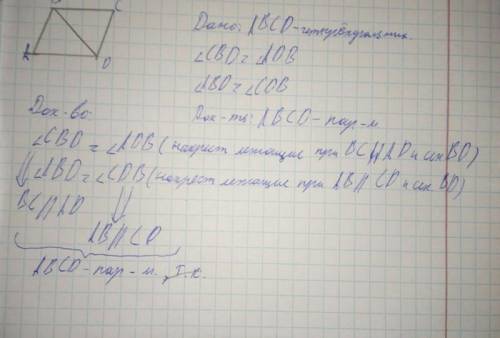 C
A
D
Дано: ABCD - четырёхугольник.
∠CBD = ∠ADB
∠ABD = ∠CDB
Док-ть: ABCD - пар-м.
Док-во:
∠CBD = ∠ADB (накрест лежащие при BC || AD и сек BD)
∠ABD = ∠CDB (накрест лежащие при AB || CD и сек BD)
BC || AD
AB || CD
ABCD - пар-м., т.к.